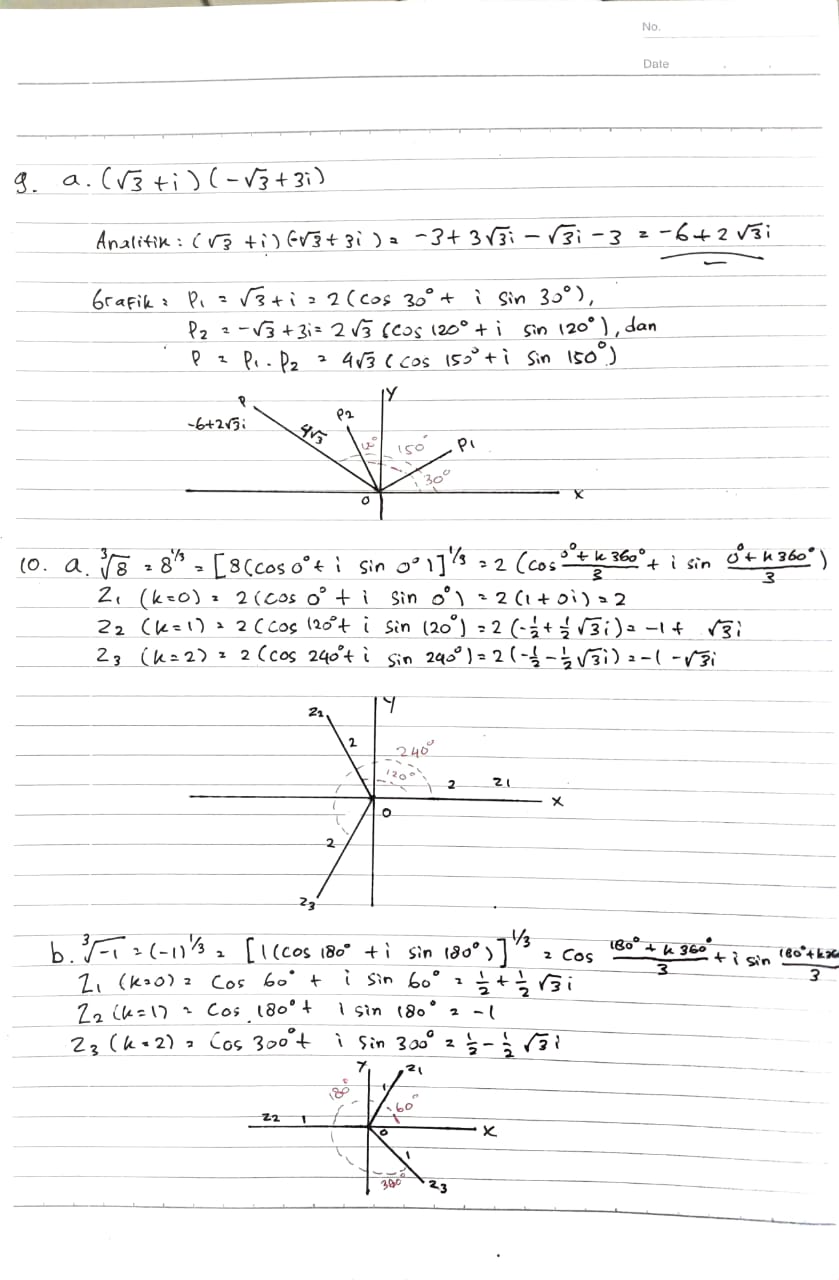 No.
Date
9. a. (√3 + i) (-√3 + 3i)
Analitik : (√3 + i) (-√3 + 3i) = -3 + 3√3i - √3i - 3 = -6 + 2√3i
Grafik : P1 = √3 + i = 2 (cos 30° + i sin 30°),
P2 = -√3 + 3i = 2√3 (cos 120° + i sin 120°), dan
P = P1 . P2 = 4√3 (cos 150° + i sin 150°)
P
Y
-6+2√3i
4√3
P2
120°
150°
P1
30°
0
X
10. a. ³√8 = 8^1/3 = [8(cos 0° + i sin 0°)]^1/3 = 2 (cos (0° + k 360°)/3 + i sin (0° + k 360°)/3)
Z1 (k=0) = 2 (cos 0° + i sin 0°) = 2 (1 + 0i) = 2
Z2 (k=1) = 2 (cos 120° + i sin 120°) = 2 (-1/2 + 1/2 √3i) = -1 + √3i
Z3 (k=2) = 2 (cos 240° + i sin 240°) = 2 (-1/2 - 1/2 √3i) = -1 - √3i
Z2
Y
2
240°
120°
2
Z1
X
0
2
Z3
b. ³√-1 = (-1)^1/3 = [1(cos 180° + i sin 180°)]^1/3 = cos (180° + k 360°)/3 + i sin (180° + k 360)/3
Z1 (k=0) = cos 60° + i sin 60° = 1/2 + 1/2 √3i
Z2 (k=1) = cos 180° + i sin 180° = -1
Z3 (k=2) = cos 300° + i sin 300° = 1/2 - 1/2 √3i
Y
Z1
180°
1
60°
Z2
1
0
X
1
300°
Z3